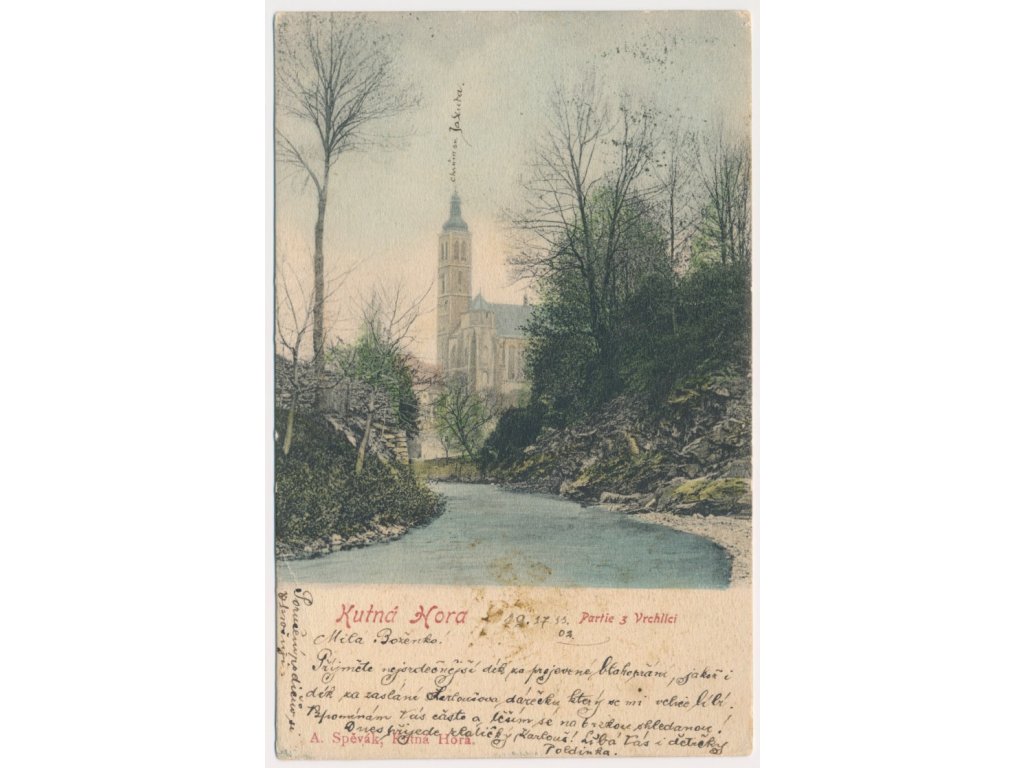 Chrám sv. Jakuba.
Kutná Hora
17 11. 02.
Partie z Vrchlici
Milá Boženko!
Přijměte nejsrdečnější dík za projevené blahopřání, jakož i
dík za zaslání Karloušova dárečku, který se mi velice líbí.
Vzpomínám Vás často a těším se na brzkou shledanou!
Dnes přijede zlatičký Karlouš! Líbá Vás i dětičky
Poldinka.
A. Spěvák, Kutná Hora.